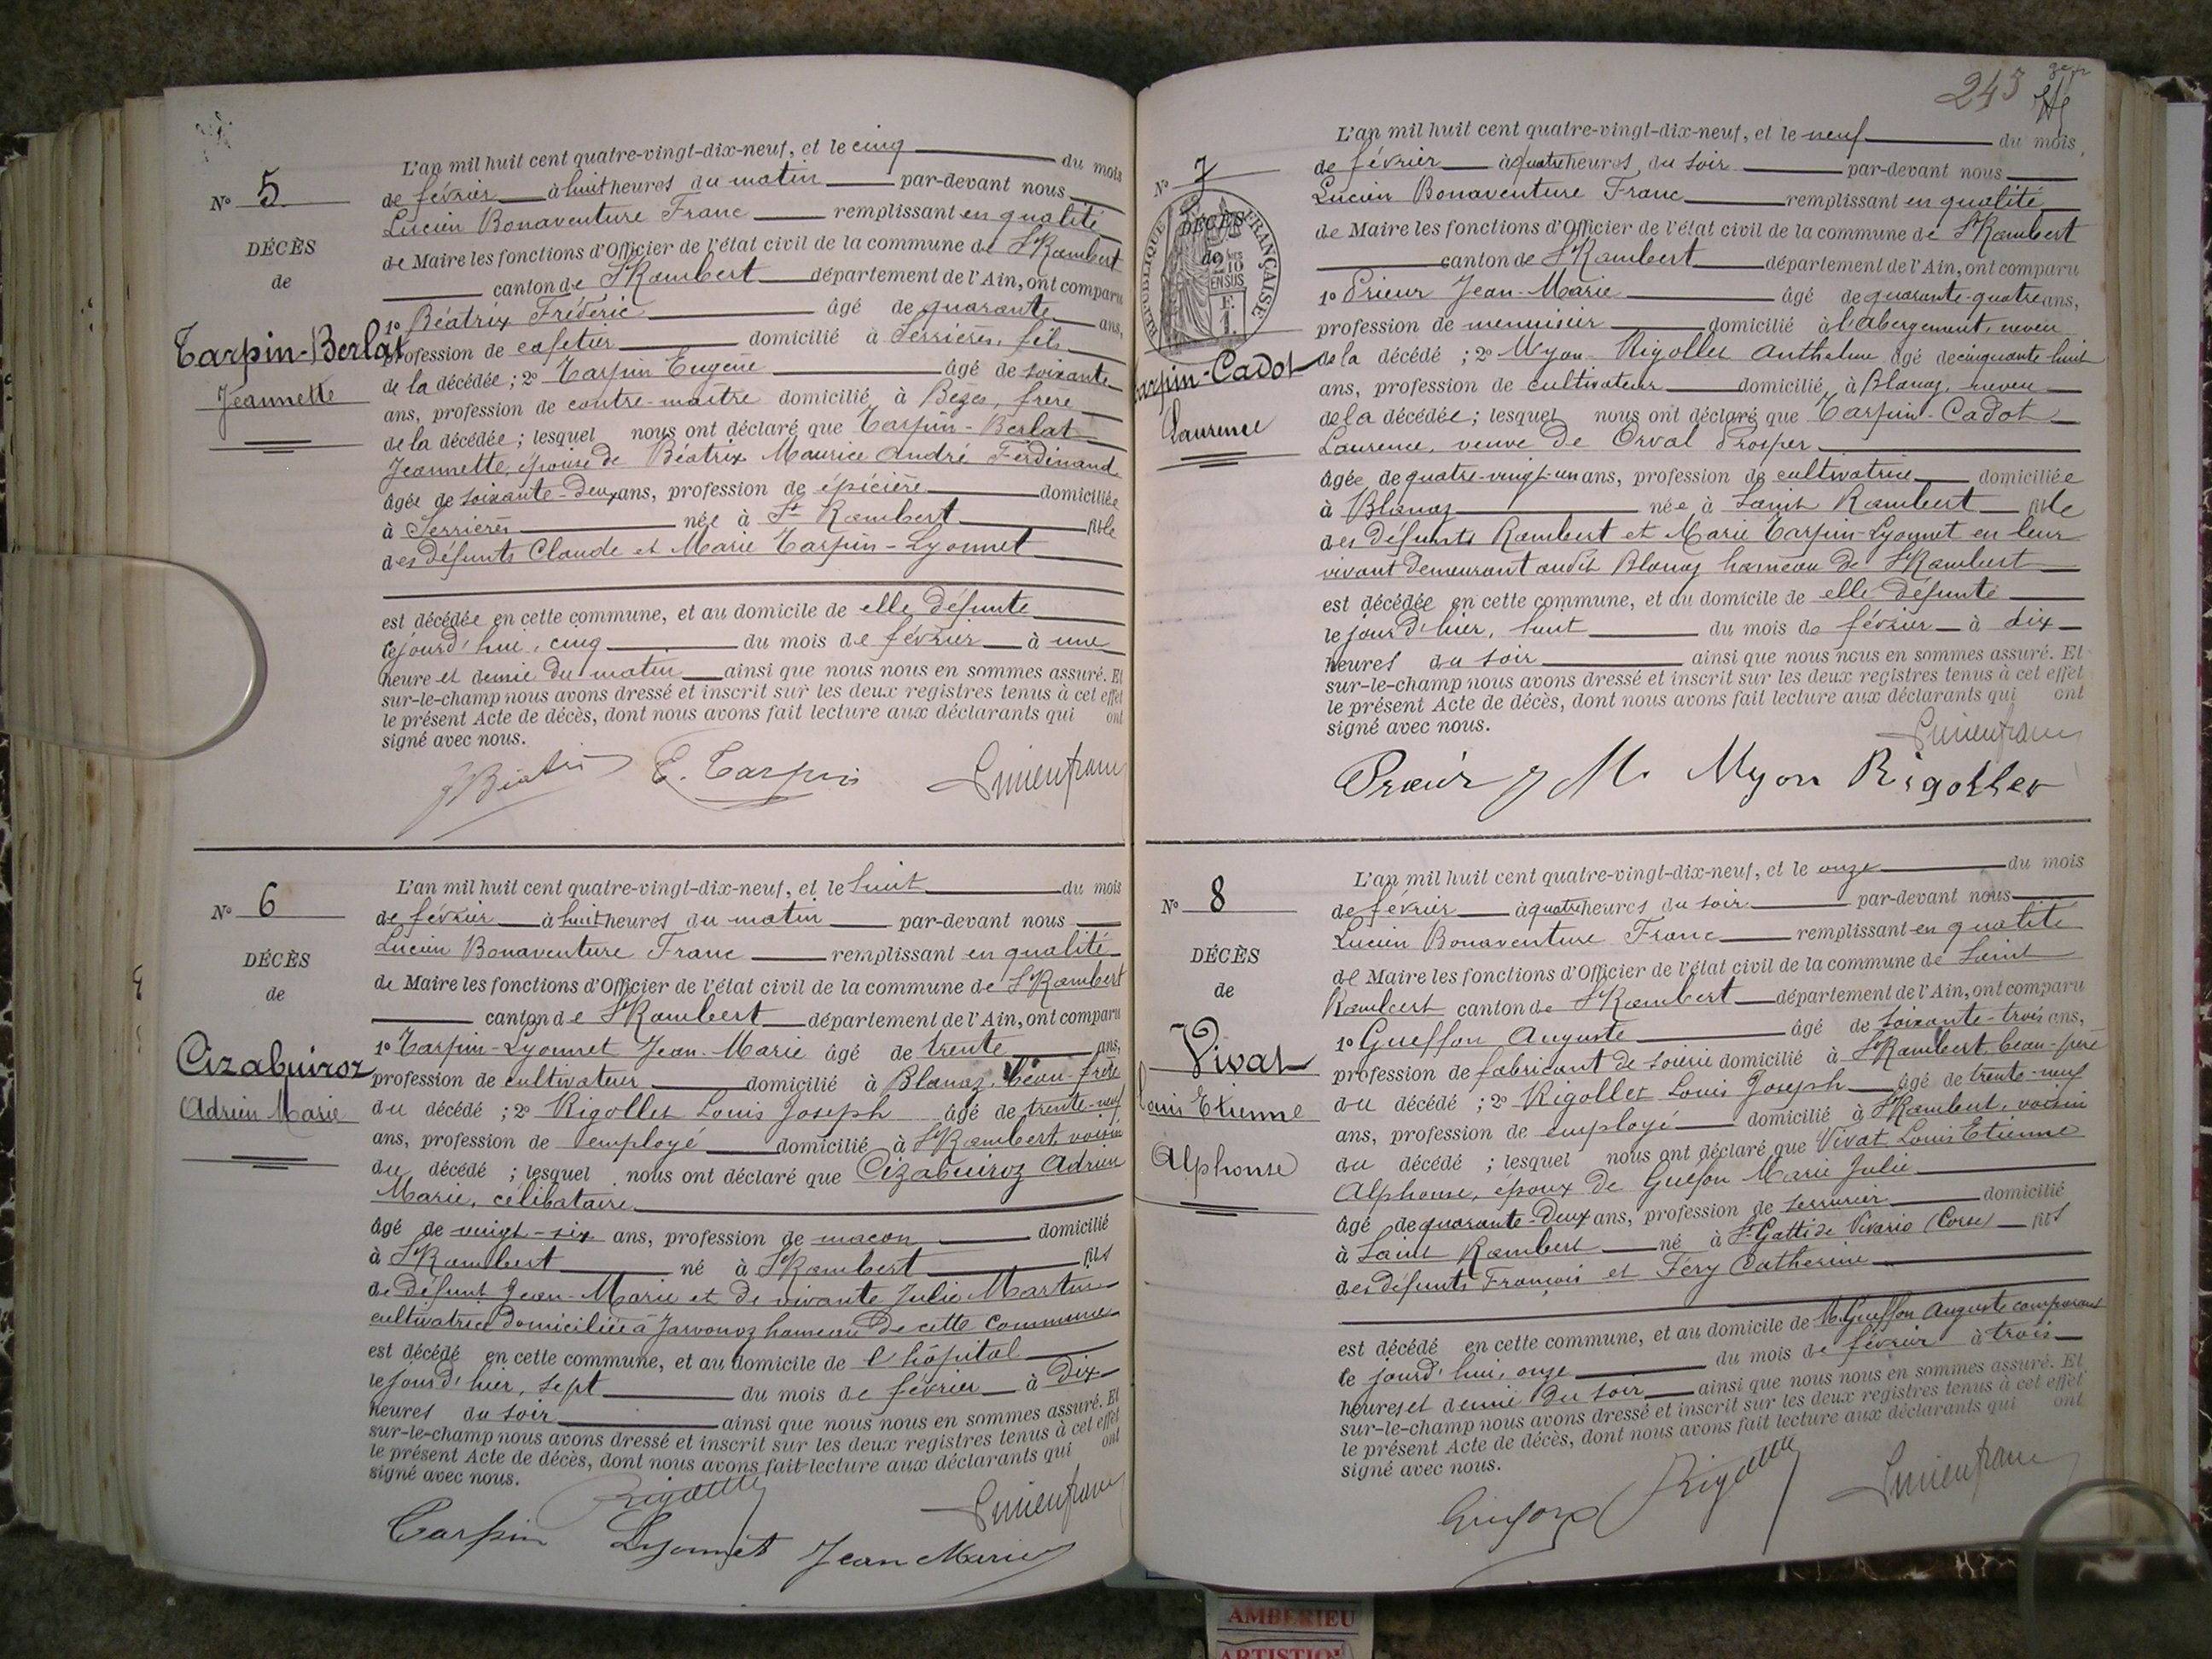 N° 5
DÉCÈS
de
Tarpin-Berlat
Jeannette
L'an mil huit cent quatre-vingt-dix-neuf, et le cinq du mois
de février à huit heures du matin par-devant nous
Lucien Bonaventure Franc remplissant en qualité
de Maire les fonctions d'Officier de l'état civil de la commune de St Rambert
canton de St Rambert département de l'Ain, ont comparu
1° Béatrix Frédéric âgé de quarante ans,
profession de cafetier domicilié à Serrières, fils
de la décédée ; 2° Tarpin Eugène âgé de soixante
ans, profession de contre-maître domicilié à Bèges, frère
de la décédée ; lesquel nous ont déclaré que Tarpin-Berlat
Jeannette, épouse de Béatrix Maurice André Ferdinand
âgée de soixante-deux ans, profession de épicière domiciliée
à Serrières née à St Rambert fille
des défunts Claude et Marie Tarpin-Lyonnet
est décédée en cette commune, et au domicile de elle défunte
cejourd'hui, cinq du mois de février à une
heure et demie du matin ainsi que nous nous en sommes assuré. Et
sur-le-champ nous avons dressé et inscrit sur les deux registres tenus à cet effet
le présent Acte de décès, dont nous avons fait lecture aux déclarants qui ont
signé avec nous.
E. Tarpin Lucien franc
N° 6
DÉCÈS
de
Cizabuiroz
Adrien Marie
L'an mil huit cent quatre-vingt-dix-neuf, et le huit du mois
de février à huit heures du matin par-devant nous
Lucien Bonaventure Franc remplissant en qualité
de Maire les fonctions d'Officier de l'état civil de la commune de St Rambert
canton de St Rambert département de l'Ain, ont comparu
1° Tarpin-Lyonnet Jean-Marie âgé de trente ans,
profession de cultivateur domicilié à Blanaz, beau-frère
du décédé ; 2° Rigollet Louis Joseph âgé de trente-neuf
ans, profession de employé domicilié à St Rambert, voisin
du décédé ; lesquel nous ont déclaré que Cizabuiroz Adrien
Marie, célibataire
âgé de vingt-six ans, profession de maçon domicilié
à St Rambert né à St Rambert fils
de défunt Jean-Marie et de vivante Julie Martin
cultivatrice domiciliée à Javornoz hameau de cette commune
est décédé en cette commune, et au domicile de l'hôpital
le jour d'hier, sept du mois de février à dix
heures du soir ainsi que nous nous en sommes assuré. Et
sur-le-champ nous avons dressé et inscrit sur les deux registres tenus à cet effet
le présent Acte de décès, dont nous avons fait lecture aux déclarants qui ont
signé avec nous.
Rigollet Lucien franc
Tarpin Lyonnet Jean Marie
243
N° 7
DÉCÈS
de
RÉPUBLIQUE FRANÇAISE
2/10 EN SUS
F. 1.
Tarpin-Cadot
Laurence
L'an mil huit cent quatre-vingt-dix-neuf, et le neuf du mois
de février à quatre heures du soir par-devant nous
Lucien Bonaventure Franc remplissant en qualité
de Maire les fonctions d'Officier de l'état civil de la commune de St Rambert
canton de St Rambert département de l'Ain, ont comparu
1° Prieur Jean-Marie âgé de quarante-quatre ans,
profession de menuisier domicilié à l'abergement, neveu
de la décédé ; 2° Myon-Rigollet Anthelme âgé de cinquante huit
ans, profession de cultivateur domicilié à Blanaz, neveu
de la décédée ; lesquel nous ont déclaré que Tarpin-Cadot
Laurence, veuve de Orval Prosper
âgée de quatre-vingt-un ans, profession de cultivatrice domiciliée
à Blanaz née à Saint Rambert fille
des défunts Rambert et Marie Tarpin-Lyonnet en leur
vivant demeurant audit Blanaz hameau de St Rambert
est décédée en cette commune, et au domicile de elle défunte
le jour d'hier, huit du mois de février à dix
heures du soir ainsi que nous nous en sommes assuré. Et
sur-le-champ nous avons dressé et inscrit sur les deux registres tenus à cet effet
le présent Acte de décès, dont nous avons fait lecture aux déclarants qui ont
signé avec nous.
Lucien franc
Prieur J M. Myon Rigollet
N° 8
DÉCÈS
de
Vivat
Louis Etienne
Alphonse
L'an mil huit cent quatre-vingt-dix-neuf, et le onze du mois
de février à quatre heures du soir par-devant nous
Lucien Bonaventure Franc remplissant en qualité
de Maire les fonctions d'Officier de l'état civil de la commune de Saint
Rambert canton de St Rambert département de l'Ain, ont comparu
1° Gueffon Auguste âgé de soixante-trois ans,
profession de fabricant de soierie domicilié à St Rambert, beau-père
du décédé ; 2° Rigollet Louis Joseph âgé de trente-neuf
ans, profession de employé domicilié à St Rambert, voisin
du décédé ; lesquel nous ont déclaré que Vivat Louis Etienne
Alphonse, époux de Gueffon Marie Julie
âgé de quarante-deux ans, profession de serrurier domicilié
à Saint Rambert né à St Gatti de Vivario (Corse) fils
des défunts François et Féry Catherine
est décédé en cette commune, et au domicile de M. Gueffon Auguste comparant
le jourd'hui, onze du mois de février à trois
heures et demie du soir ainsi que nous nous en sommes assuré. Et
sur-le-champ nous avons dressé et inscrit sur les deux registres tenus à cet effet
le présent Acte de décès, dont nous avons fait lecture aux déclarants qui ont
signé avec nous.
Rigollet Lucien franc
AMBERIEU